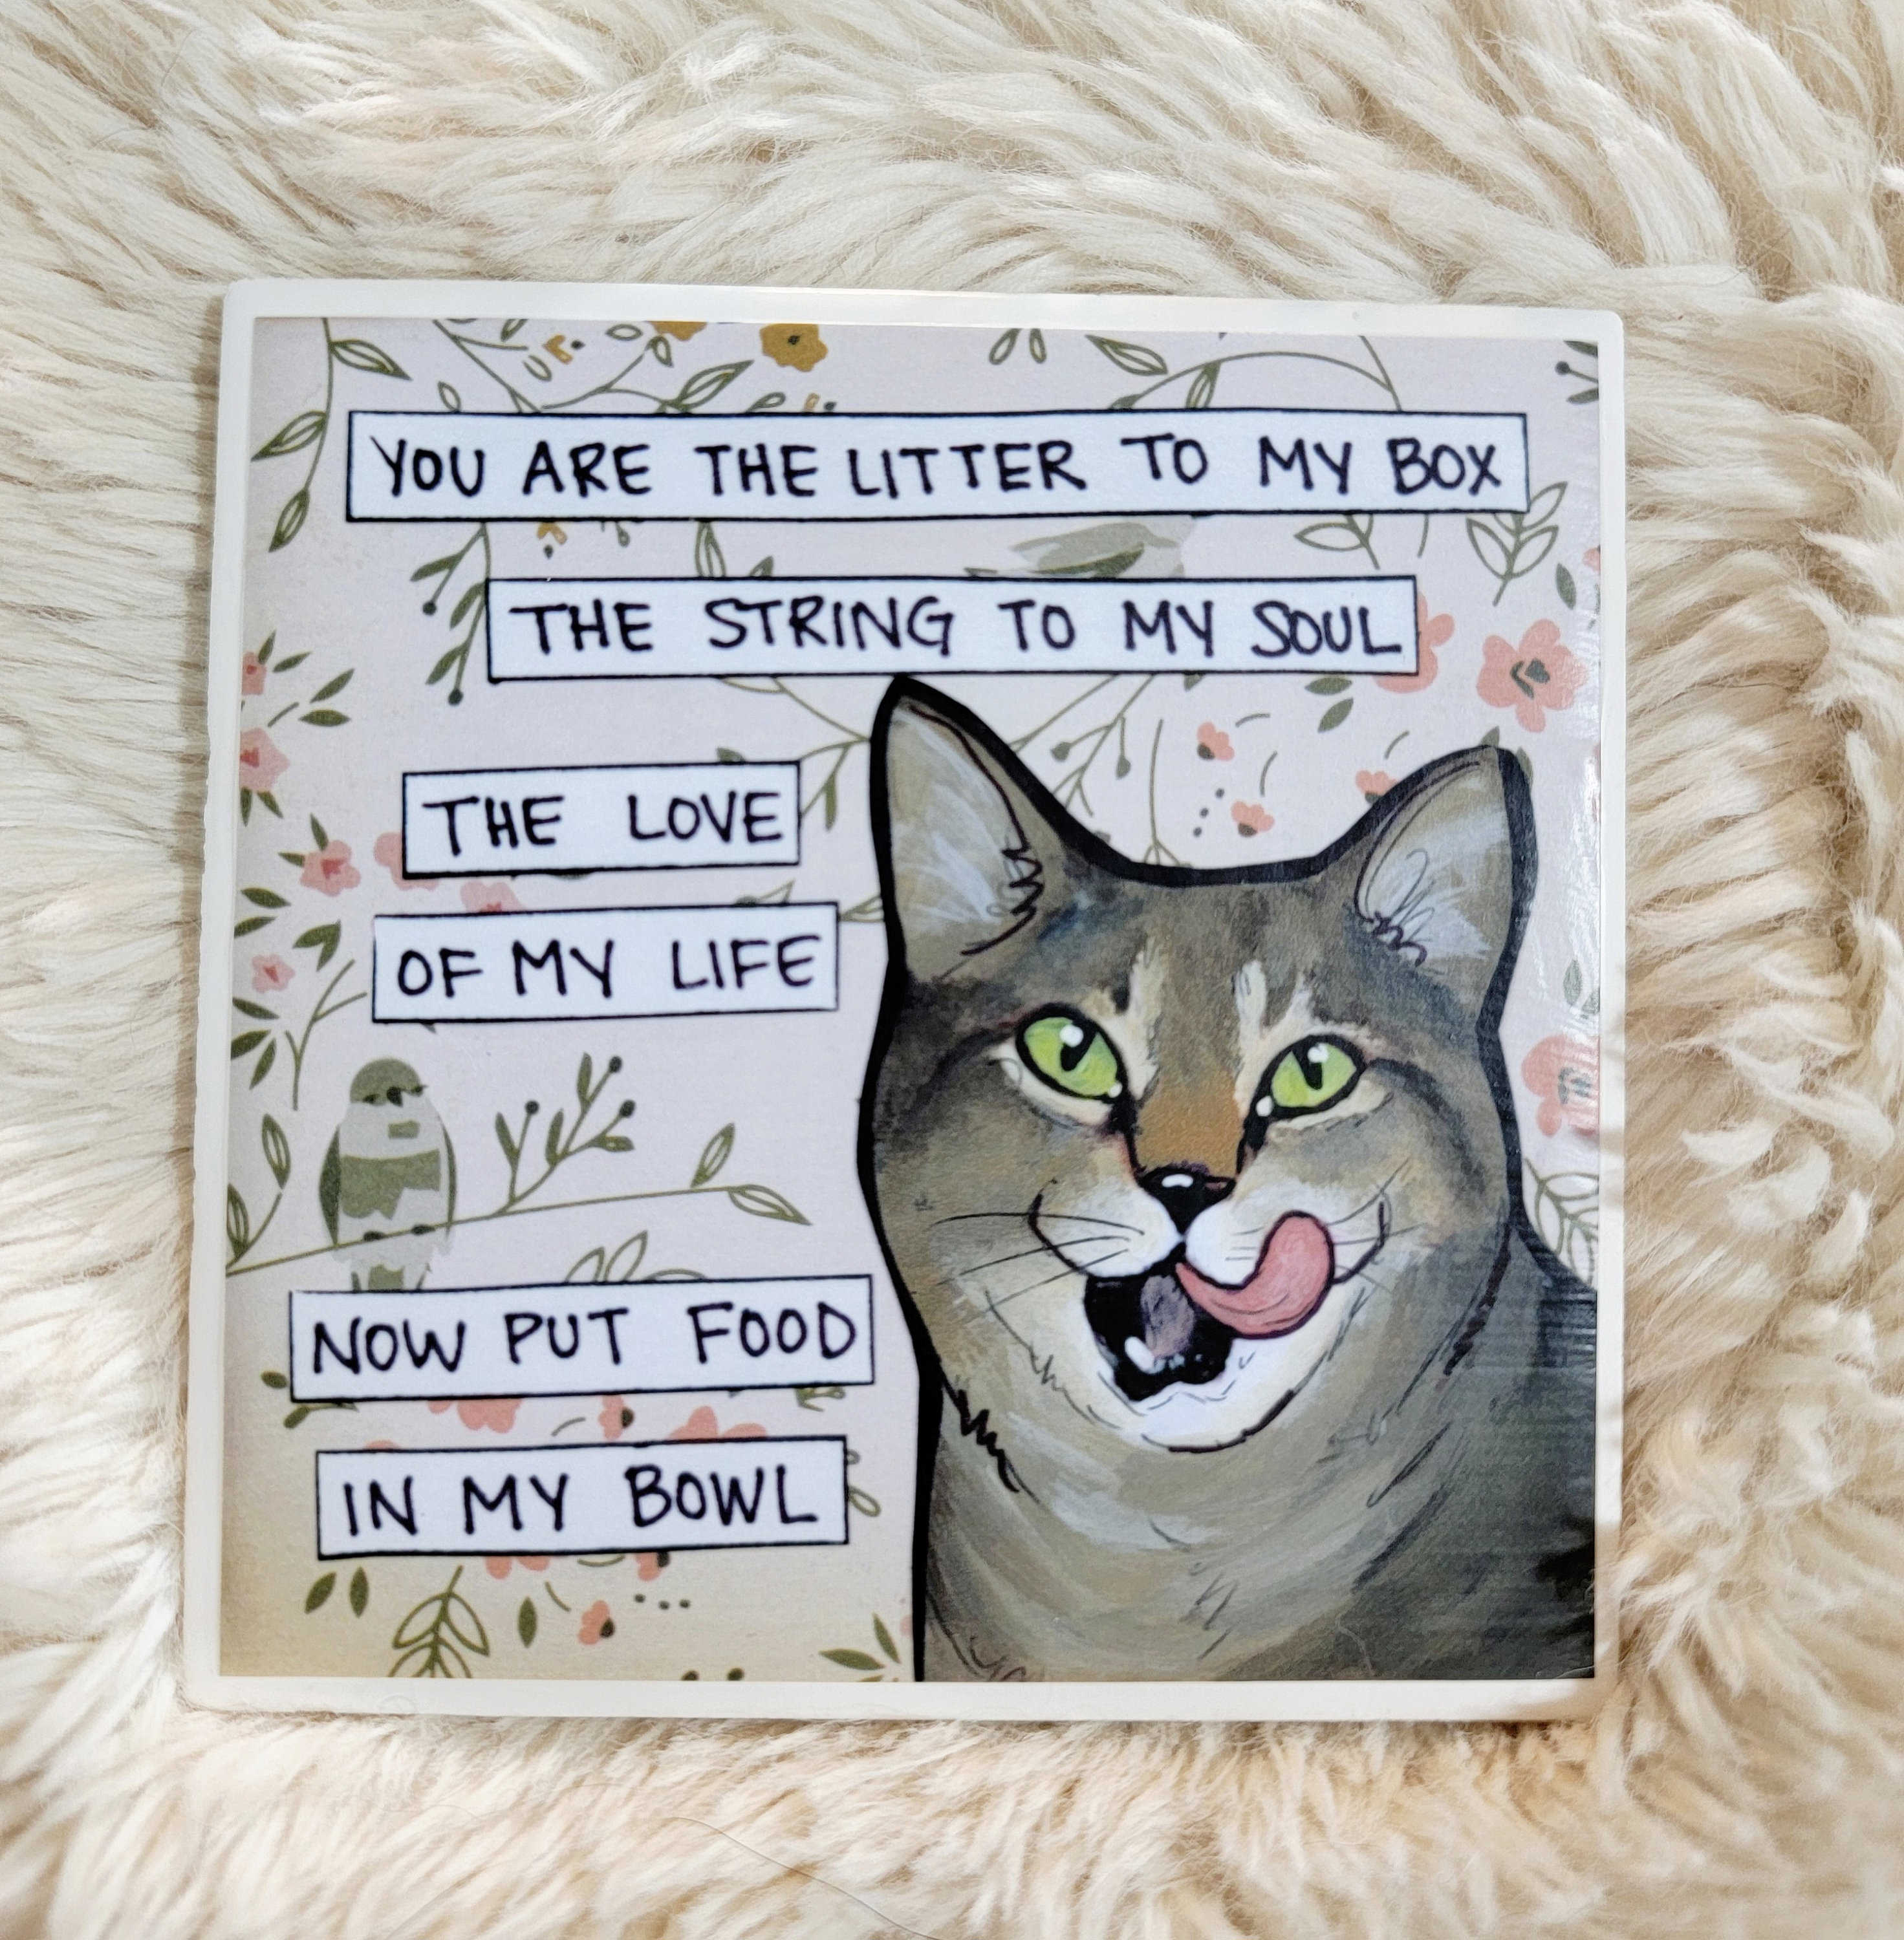 YOU ARE THE LITTER TO MY BOX
THE STRING TO MY SOUL
THE LOVE
OF MY LIFE
NOW PUT FOOD
IN MY BOWL